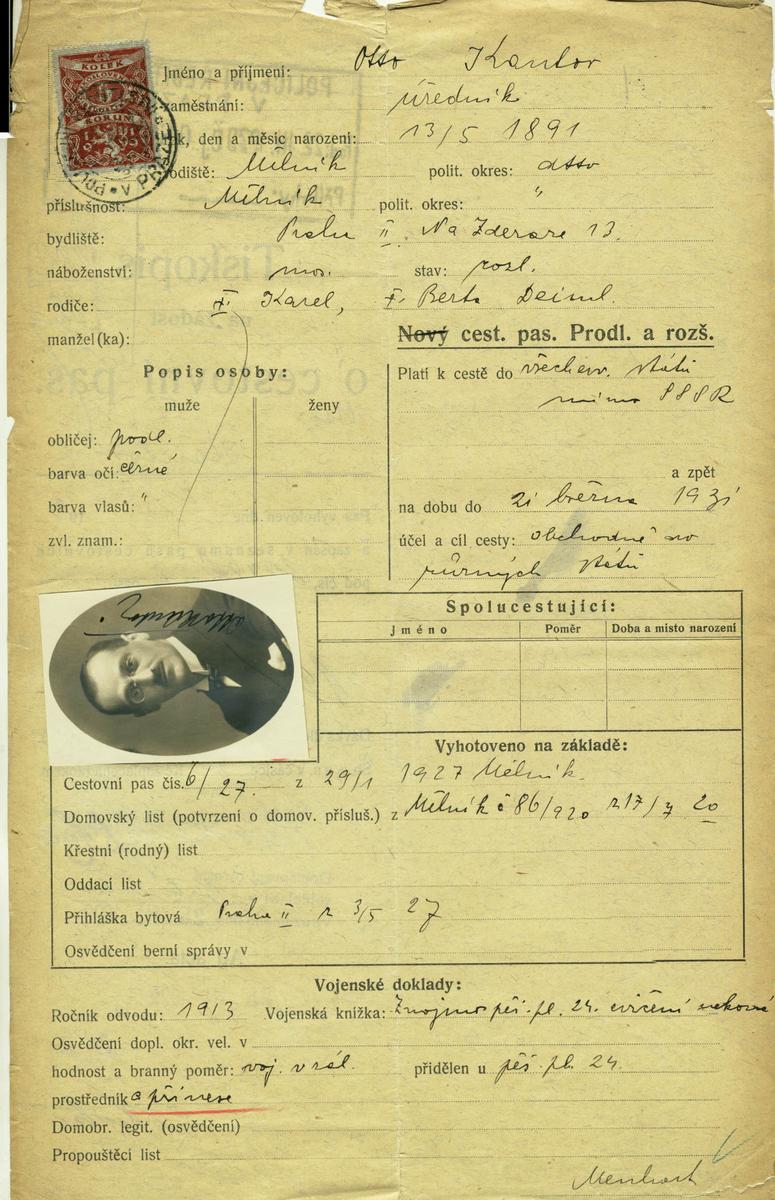 KOLEK
ČESKOSLOVENSKÁ
5
KORUN
V PRAZE
Jméno a příjmení: Otto Kantor
zaměstnání: úředník
k, den a měsíc narození: 13/5 1891
odiště: Mělník polit. okres: dtto
příslušnost: Mělník polit. okres: "
bydliště: Praha II. Na Zderaze 13.
náboženství: mos. stav: rozl.
rodiče: Karel, Berta Deiml.
manžel(ka):
Nový cest. pas. Prodl. a rozš.
Popis osoby:
muže ženy
Platí k cestě do všech evr. států
mimo SSSR
obličej: podl.
barva očí: černé
barva vlasů: "
zvl. znam.:
a zpět
na dobu do 21 března 1931
účel a cíl cesty: obchodně do
různých států
Spolucestující:
Jméno Poměr Doba a místo narození
Vyhotoveno na základě:
Cestovní pas čís. 6/27. z 29/1 1927 Mělník.
Domovský list (potvrzení o domov. přísluš.) z Mělník č 86/920 z 17/7 20
Křestní (rodný) list
Oddací list
Přihláška bytová Praha II z 3/5 27
Osvědčení berní správy v
Vojenské doklady:
Ročník odvodu: 1913 Vojenská kniżka: Znojmo pěš. pl. 24. cvičení nekoná
Osvědčení dopl. okr. vel. v
hodnost a branný poměr: voj. v zál. přidělen u pěš. pl. 24.
prostředník a přinese
Domobr. legit. (osvědčení)
Propouštěcí list